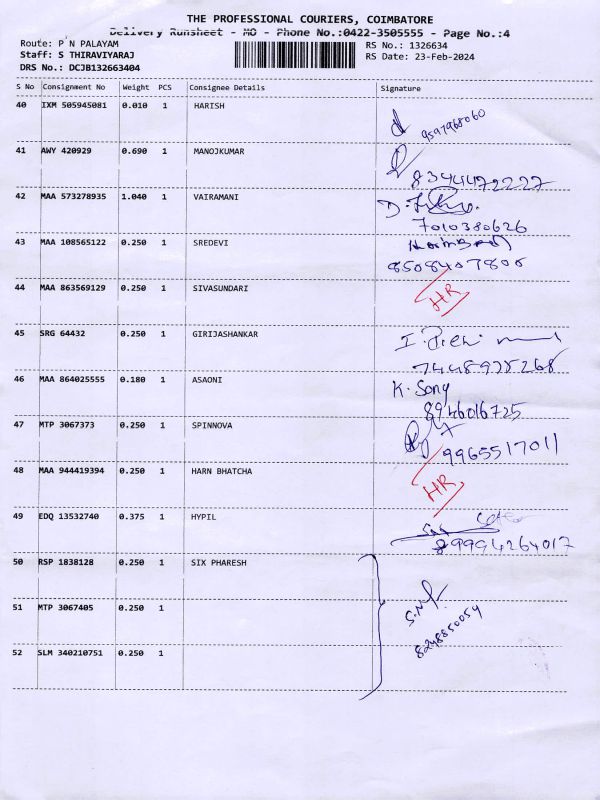 THE PROFESSIONAL COURIERS, COIMBATORE
Delivery Runsheet - MO - Phone No.:0422-3505555 - Page No.:4
Route: P N PALAYAM
RS No.: 1326634
Staff: S THIRAVIYARAJ
RS Date: 23-Feb-2024
DRS No.: DCJB132663404
S No Consignment No Weight PCS Consignee Details Signature
40 IXM 505945081 0.010 1 HARISH
9597968060
41 AWY 420929 0.690 1 MANOJKUMAR
8344472227
42 MAA 573278935 1.040 1 VAIRAMANI
7010380626
43 MAA 108565122 0.250 1 SREDEVI
8508407806
44 MAA 863569129 0.250 1 SIVASUNDARI
HR
45 SRG 64432 0.250 1 GIRIJASHANKAR
7448975268
46 MAA 864025555 0.180 1 ASAONI
K. Sony
8946016725
47 MTP 3067373 0.250 1 SPINNOVA
9965517011
48 MAA 944419394 0.250 1 HARN BHATCHA
HR
49 EDQ 13532740 0.375 1 HYPIL
89994264017
50 RSP 1838128 0.250 1 SIX PHARESH
51 MTP 3067405 0.250 1
8248850054
52 SLM 340210751 0.250 1